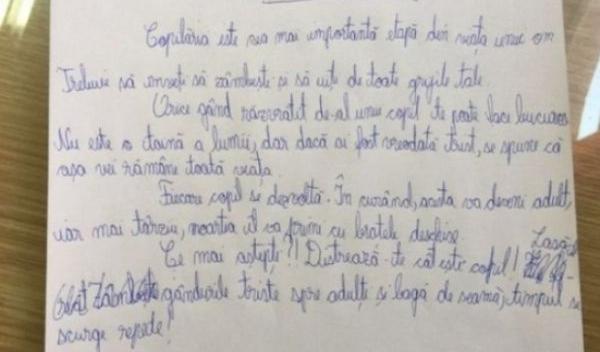 Copilăria este cea mai importantă etapă din viața unui om
Trebuie să înveți să zâmbești și să uiți de toate grijile tale.
Orice gând răzvrătit de-al unui copil te poate face bucuros
Nu este o taină a lumii, dar dacă ai fost vreodată trist, se spune că
așa vei rămâne toată viața.
Fiecare copil se dezvoltă. În curând, acesta va deveni adult,
iar mai târziu, moartea îl va primi cu brațele deschise.
Ce mai aștepți?! Distrează-te cât ești copil! Lasă
Zâmbește gândurile triste spre adulți și bagă de seamă, timpul se
scurge repede!